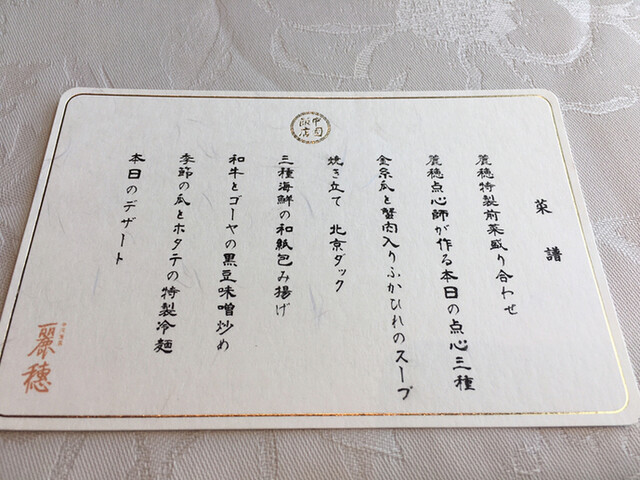 中国
飯店
菜譜
麗穂特製前菜盛り合わせ
麗穂点心師が作る本日の点心三種
金糸瓜と蟹肉入りふかひれのスープ
焼き立て 北京ダック
三種海鮮の和紙包み揚げ
和牛とゴーヤの黒豆味噌炒め
季節の瓜とホタテの特製冷麺
本日のデザート
麗穂